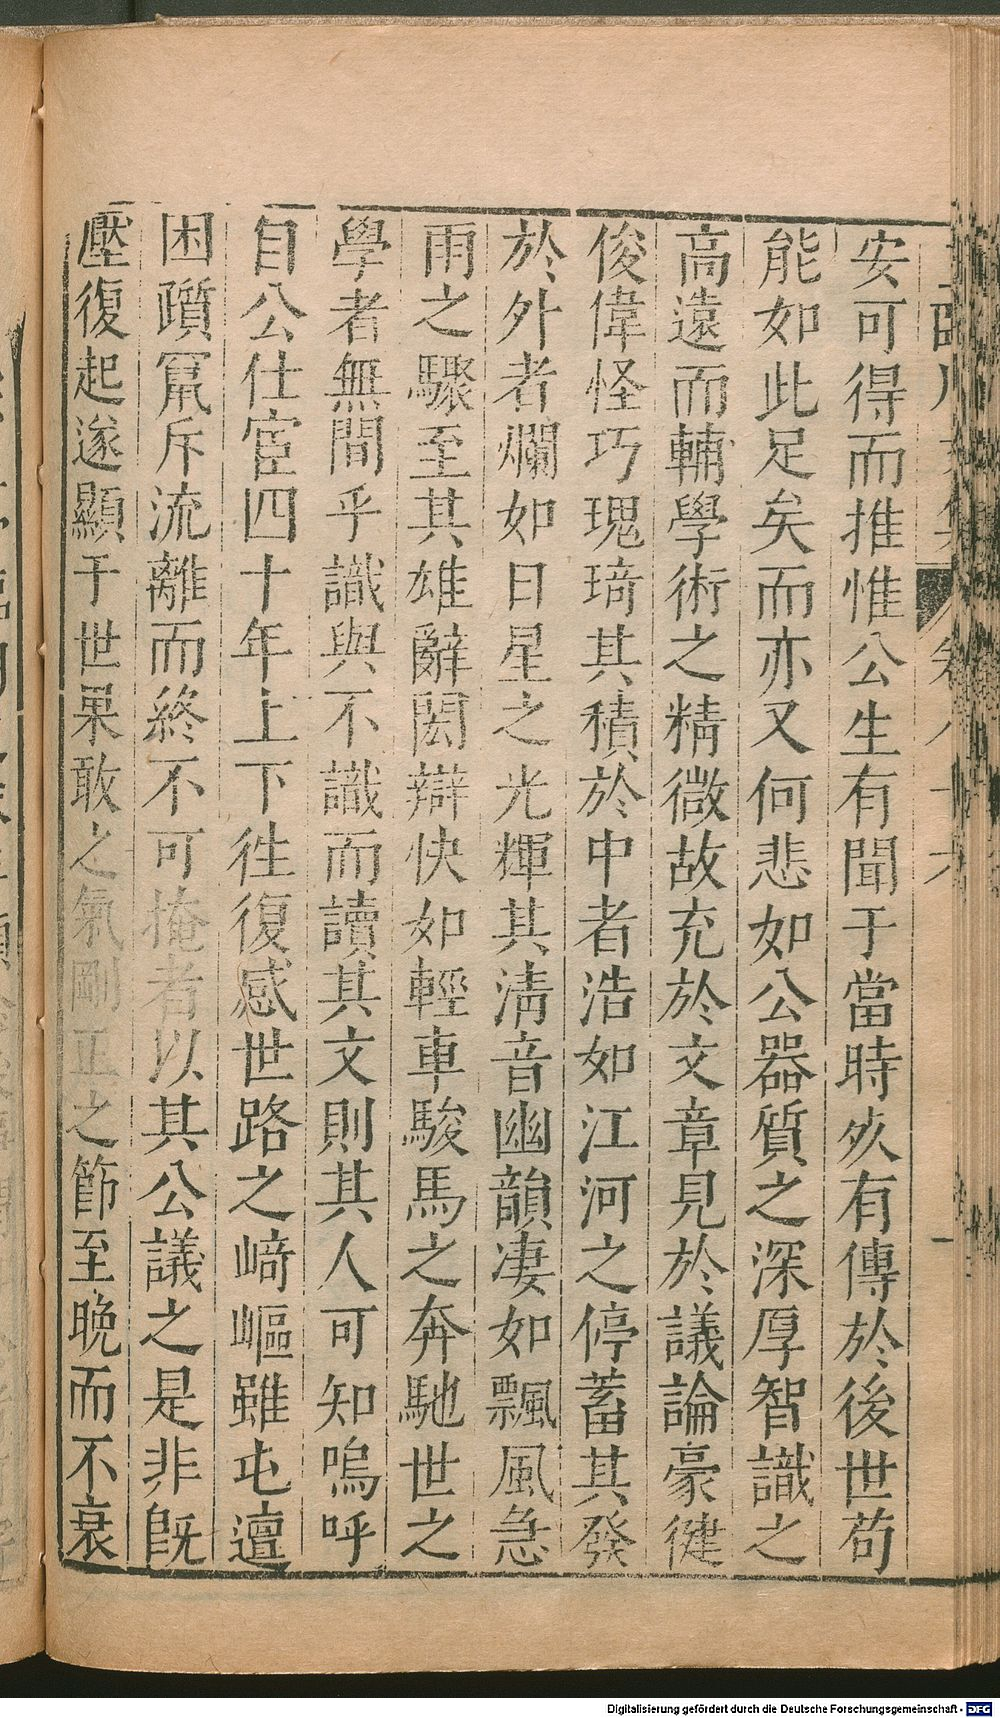 安可得而推惟公生有聞于當時死有傳於後世苟
能如此足矣而亦又何悲如公器質之深厚智識之
高遠而輔學術之精微故充於文章見於議論豪健
俊偉怪巧瑰琦其積於中者浩如江河之停蓄其發
於外者爛如日星之光輝其清音幽韻凄如飄風急
雨之驟至其雄辭閎辯快如輕車駿馬之奔馳世之
學者無間乎識與不識而讀其文則其人可知嗚呼
自公仕宦四十年上下徃復感世路之崎嶇雖屯邅
困躓竄斥流離而終不可掩者以其公議之是非旣
壓復起遂顯于世果敢之氣剛正之節至晚而不衰
Digitalisierung gefördert durch die Deutsche Forschungsgemeinschaft - DFG